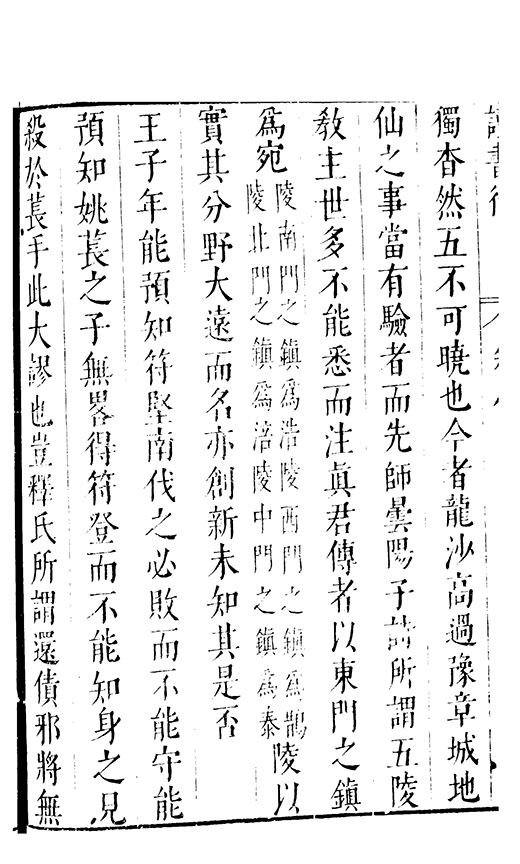 讀書後
獨杳然五不可曉也今者龍沙高過豫章城地
仙之事當有驗者而先師曇陽子詩所謂五陵
教主世多不能悉而注眞君傳者以東門之鎮
爲宛
陵南門之鎮爲浩陵西門之鎮爲鵲
陵北門之鎮爲涪陵中門之鎮爲泰
陵以
實其分野大遠而名亦創新未知其是否
王子年能預知符堅南伐之必敗而不能守能
預知姚萇之子無畧得符登而不能知身之見
殺於萇手此大謬也豈釋氏所謂還債邪將無